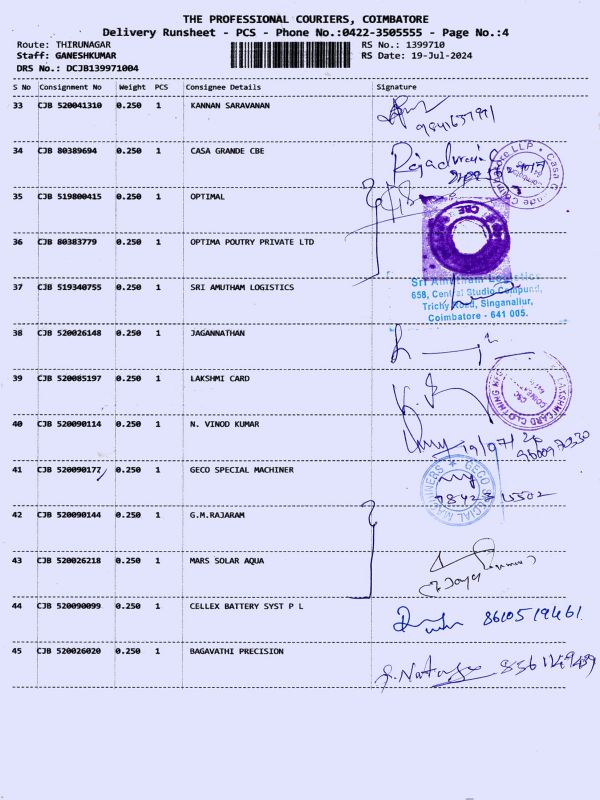 THE PROFESSIONAL COURIERS, COIMBATORE
Delivery Runsheet - PCS - Phone No.:0422-3505555 - Page No.:4
Route: THIRUNAGAR RS No.: 1399710
Staff: GANESHKUMAR RS Date: 19-Jul-2024
DRS No.: DCJB139971004
S No Consignment No Weight PCS Consignee Details Signature
33 CJB 520041310 0.250 1 KANNAN SARAVANAN
34 CJB 80389694 0.250 1 CASA GRANDE CBE
35 CJB 519800415 0.250 1 OPTIMAL
36 CJB 80383779 0.250 1 OPTIMA POUTRY PRIVATE LTD
37 CJB 519340755 0.250 1 SRI AMUTHAM LOGISTICS
Sri Amutham Logistics
658, Central Studio Compund,
Trichy Road, Singanallur,
Coimbatore - 641 005.
38 CJB 520026148 0.250 1 JAGANNATHAN
39 CJB 520085197 0.250 1 LAKSHMI CARD
40 CJB 520090114 0.250 1 N. VINOD KUMAR
19/07/24
41 CJB 520090177 0.250 1 GECO SPECIAL MACHINER
GECO SPECIAL MACHINERS
42 CJB 520090144 0.250 1 G.M.RAJARAM
43 CJB 520026218 0.250 1 MARS SOLAR AQUA
44 CJB 520090099 0.250 1 CELLEX BATTERY SYST P L
8610519461
45 CJB 520026020 0.250 1 BAGAVATHI PRECISION